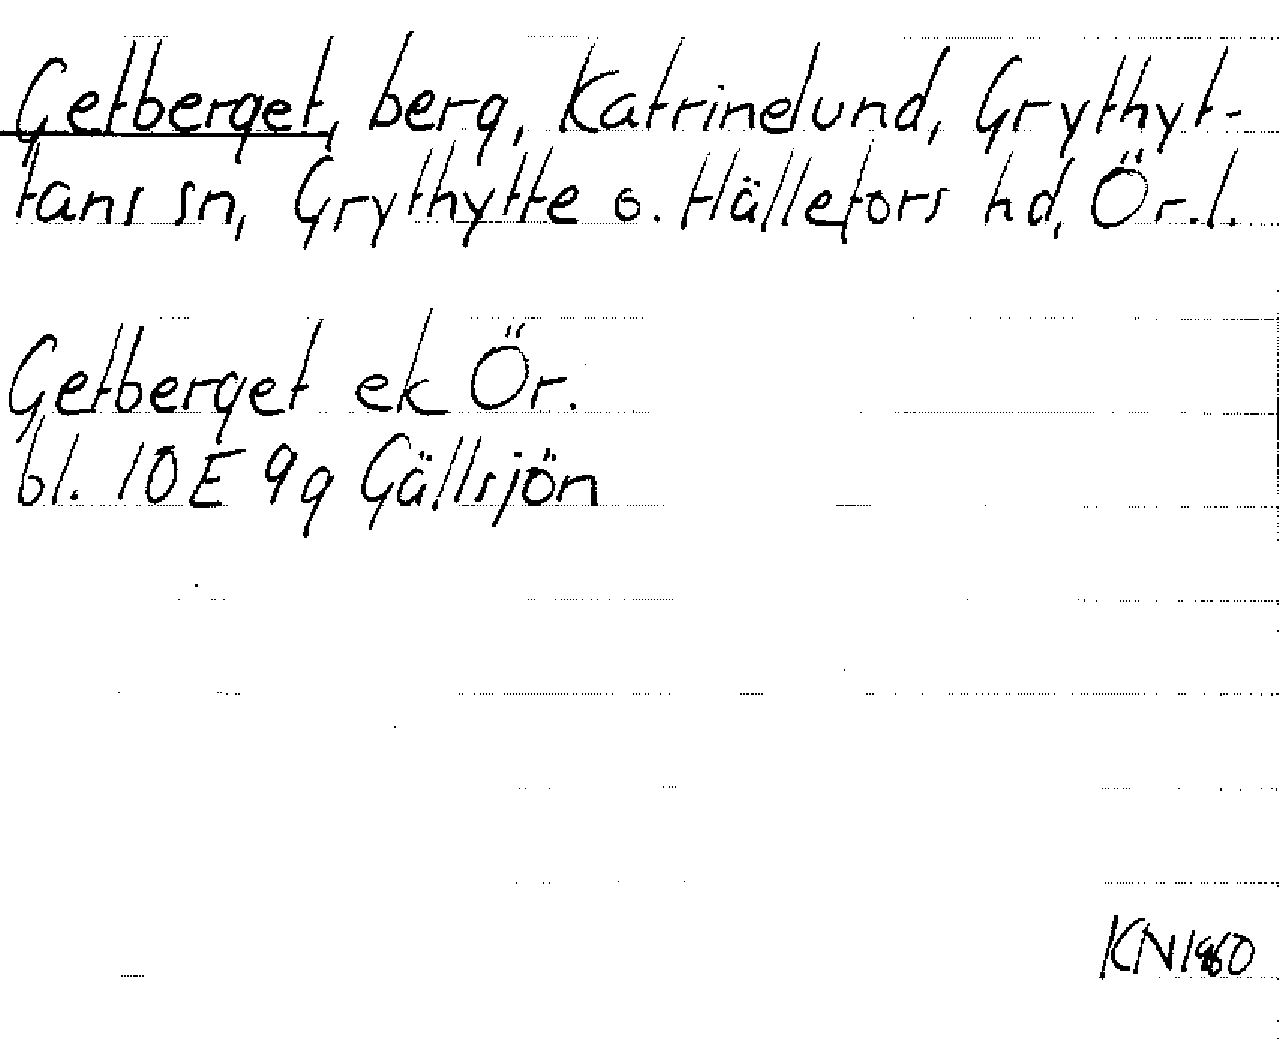 Getberget, berg, Katrinelund, Grythyt-
tans sn, Grythytte o. Hällefors hd, Ör.l.
Getberget ek Ör.
bl. 10 E 9g Gällsjön
KN